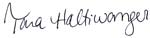 Tara Haltiwanger